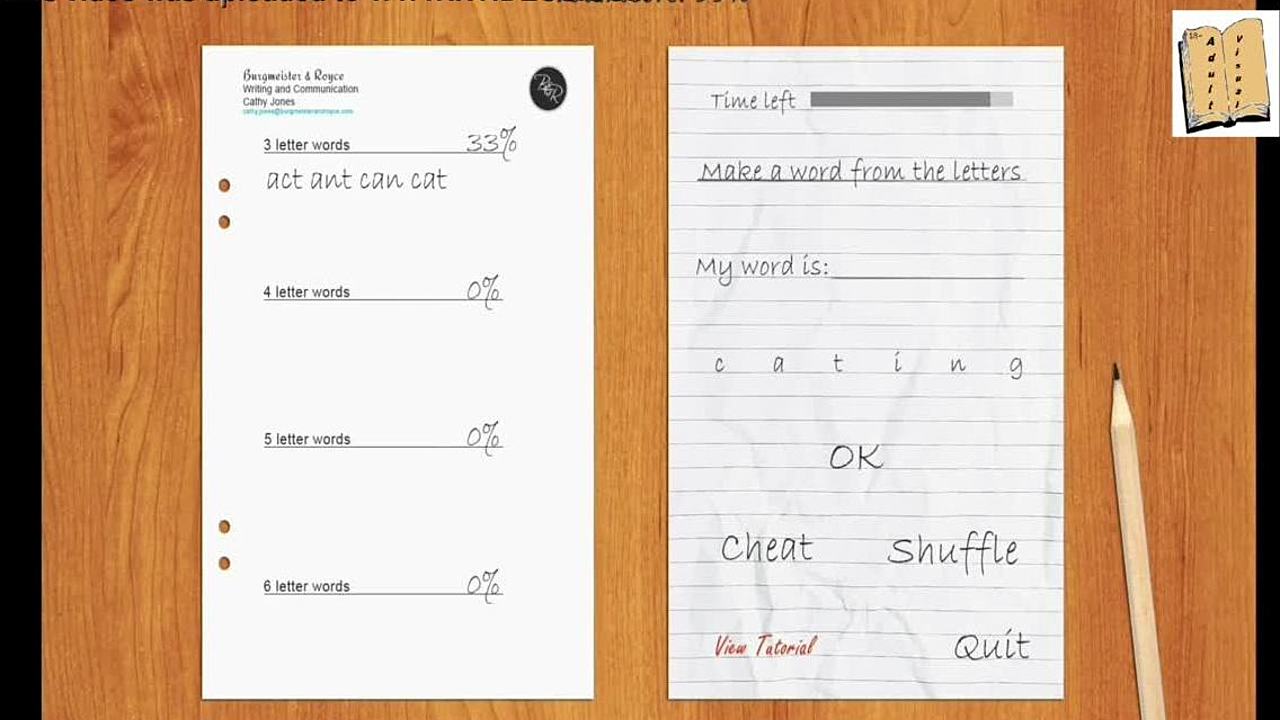 Burgmeister & Royce
Writing and Communication
Cathy Jones
cathy.jones@burgmeisterandroyce.com
B&R
3 letter words 33%
act ant can cat
4 letter words 0%
5 letter words 0%
6 letter words 0%
Time left
Make a word from the letters
My word is:
c a t i n g
OK
Cheat Shuffle
View Tutorial Quit
18+
Adult
Visual